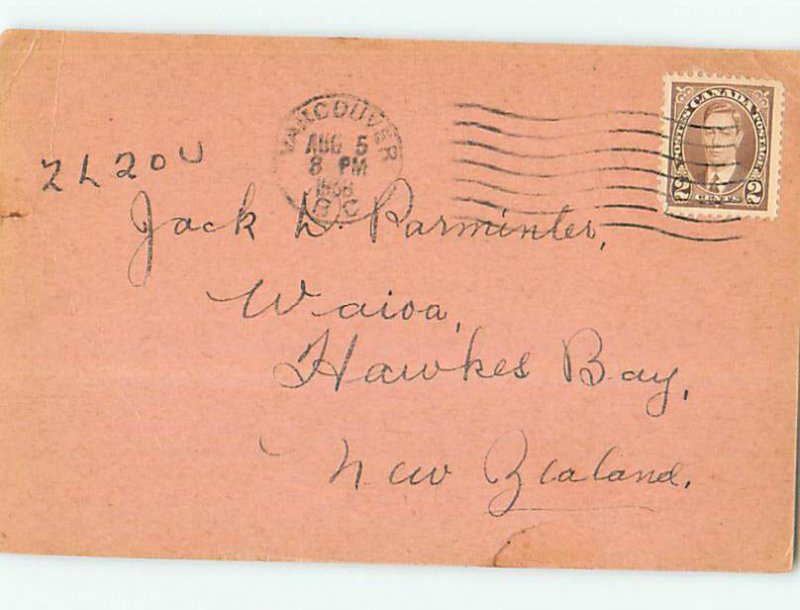 VANCOUVER
AUG 5
8 PM
1938
B C
POSTES CANADA POSTAGE
2 CENTS 2
ZL2OU
Jack L. Parminter,
Waioa,
Hawkes Bay,
New Zealand.